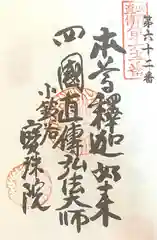 第六十二番
本尊釋迦如来
四國直傳弘法大師
小鍛冶
寳珠院